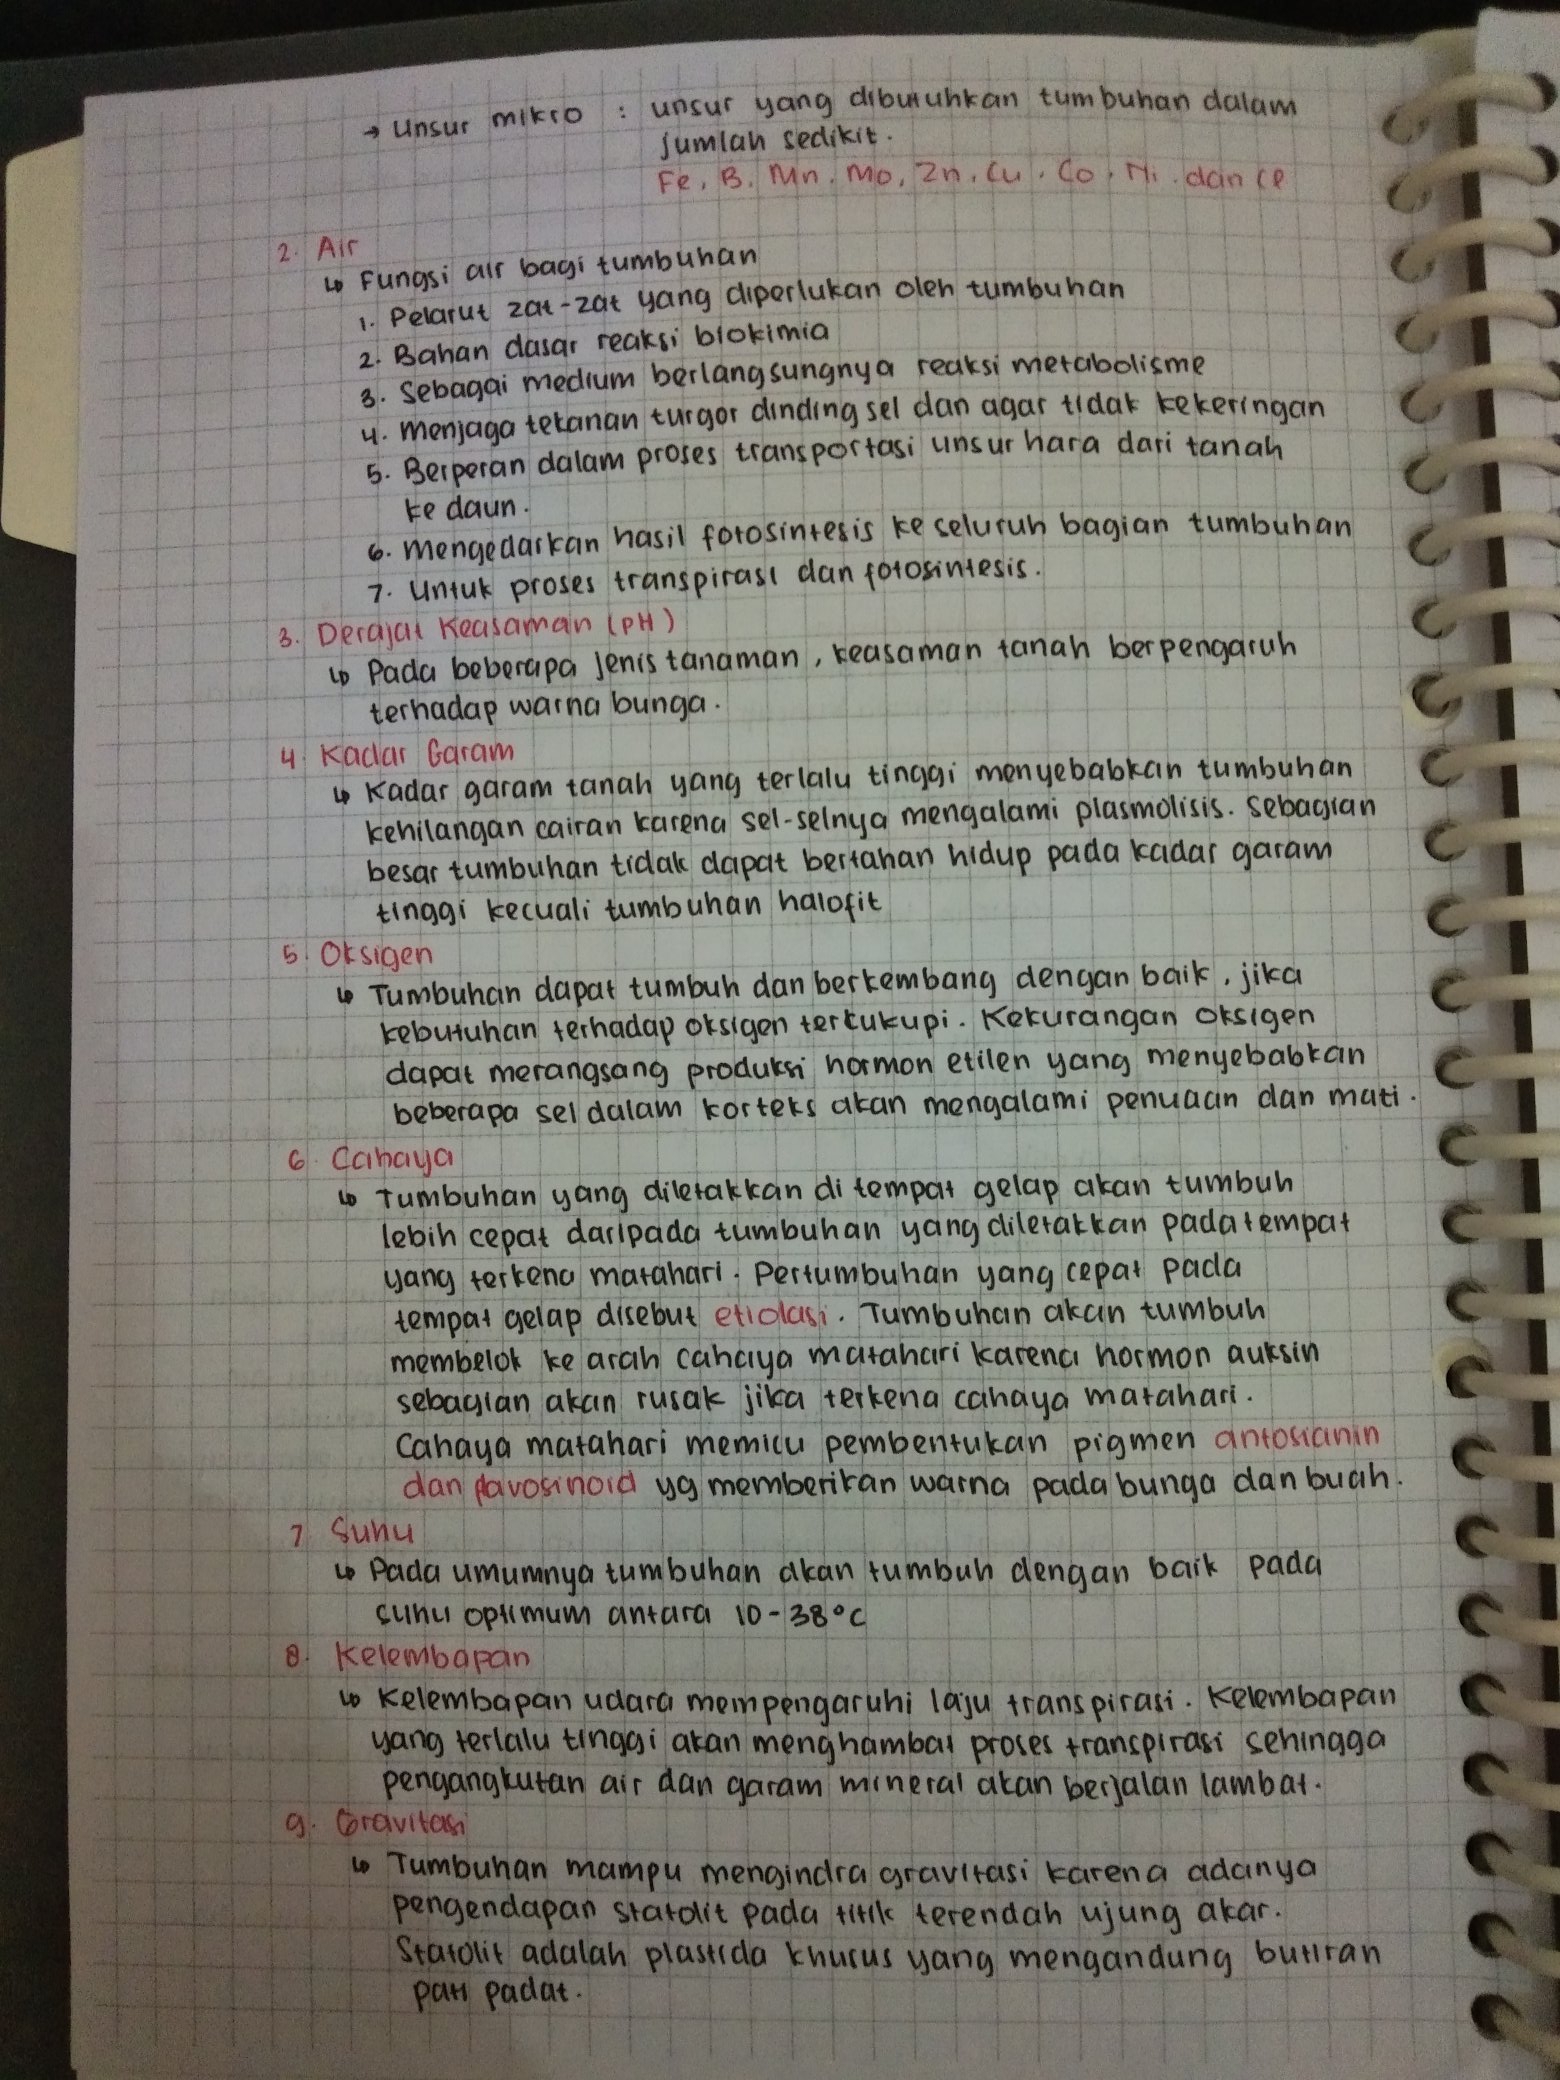 → Unsur mikro : unsur yang dibutuhkan tumbuhan dalam
jumlah sedikit.
Fe, B, Mn, Mo, Zn, Cu, Co, Ni, dan Cl
2. Air
↳ Fungsi air bagi tumbuhan
1. Pelarut zat-zat yang diperlukan oleh tumbuhan
2. Bahan dasar reaksi biokimia
3. Sebagai medium berlangsungnya reaksi metabolisme
4. Menjaga tekanan turgor dinding sel dan agar tidak kekeringan
5. Berperan dalam proses transportasi unsur hara dari tanah
ke daun.
6. Mengedarkan hasil fotosintesis ke seluruh bagian tumbuhan
7. Untuk proses transpirasi dan fotosintesis.
3. Derajat Keasaman (pH)
↳ Pada beberapa jenis tanaman, keasaman tanah berpengaruh
terhadap warna bunga.
4. Kadar Garam
↳ Kadar garam tanah yang terlalu tinggi menyebabkan tumbuhan
kehilangan cairan karena sel-selnya mengalami plasmolisis. Sebagian
besar tumbuhan tidak dapat bertahan hidup pada kadar garam
tinggi kecuali tumbuhan halofit
5. Oksigen
↳ Tumbuhan dapat tumbuh dan berkembang dengan baik, jika
kebutuhan terhadap oksigen tercukupi. Kekurangan oksigen
dapat merangsang produksi hormon etilen yang menyebabkan
beberapa sel dalam korteks akan mengalami penuaan dan mati.
6. Cahaya
↳ Tumbuhan yang diletakkan di tempat gelap akan tumbuh
lebih cepat daripada tumbuhan yang diletakkan pada tempat
yang terkena matahari. Pertumbuhan yang cepat pada
tempat gelap disebut etiolasi. Tumbuhan akan tumbuh
membelok ke arah cahaya matahari karena hormon auksin
sebagian akan rusak jika terkena cahaya matahari.
Cahaya matahari memicu pembentukan pigmen antosianin
dan flavosinoid yg memberikan warna pada bunga dan buah.
7. Suhu
↳ Pada umumnya tumbuhan akan tumbuh dengan baik pada
suhu optimum antara 10-38°C
8. Kelembapan
↳ Kelembapan udara mempengaruhi laju transpirasi. Kelembapan
yang terlalu tinggi akan menghambat proses transpirasi sehingga
pengangkutan air dan garam mineral akan berjalan lambat.
9. Gravitasi
↳ Tumbuhan mampu mengindra gravitasi karena adanya
pengendapan statolit pada titik terendah ujung akar.
Statolit adalah plastida khusus yang mengandung butiran
pati padat.